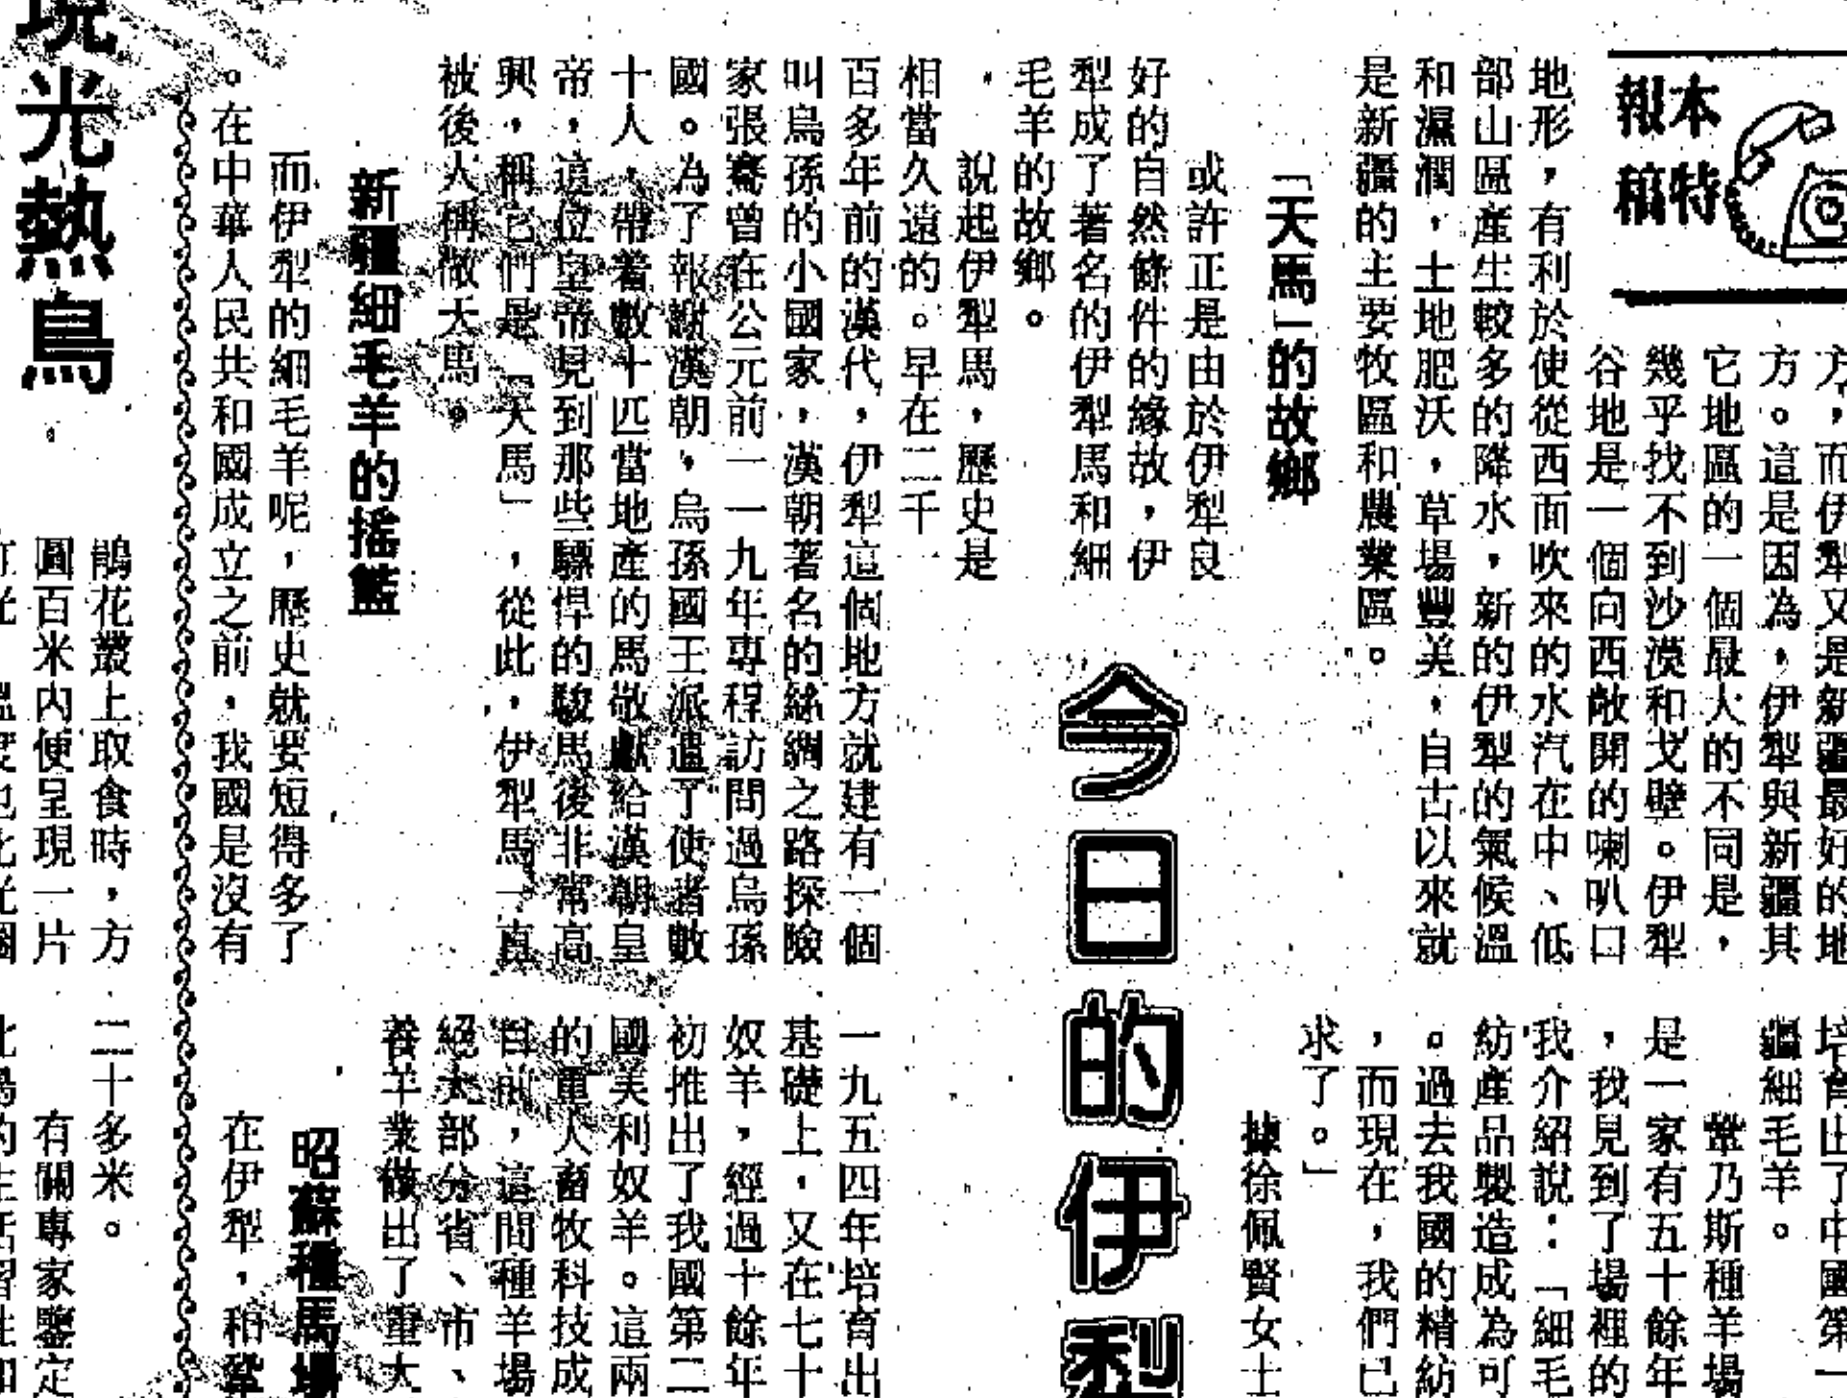 本報特稿
今日的伊犁
方，而伊犁又是新疆最好的地
方。這是因為，伊犁與新疆其
它地區的一個最大的不同是，
幾乎找不到沙漠和戈壁。伊犁
谷地是一個向西敞開的喇叭口
地形，有利於使從西面吹來的水汽在中、低
部山區產生較多的降水，新的伊犁的氣候溫
和濕潤，土地肥沃，草場豐美，自古以來就
是新疆的主要牧區和農業區。
「天馬」的故鄉
或許正是由於伊犁良
好的自然條件的緣故，伊
犁成了著名的伊犁馬和細
毛羊的故鄉。
說起伊犁馬，歷史是
相當久遠的。早在二千
百多年前的漢代，伊犁這個地方就建有一個
叫烏孫的小國家，漢朝著名的絲綢之路探險
家張騫曾在公元前一一九年專程訪問過烏孫
國。為了報謝漢朝，烏孫國王派遣了使者數
十人，帶着數十匹當地產的馬敬獻給漢朝皇
帝，這位皇帝見到那些驃悍的駿馬後非常高
興，稱它們是「天馬」，從此，伊犁馬一直
被後人稱做天馬。
新疆細毛羊的搖籃
而伊犁的細毛羊呢，歷史就要短得多了
。在中華人民共和國成立之前，我國是沒有
培育出了中國第一
疆細毛羊。
鞏乃斯種羊場
是一家有五十餘年
，我見到了場裡的
我介紹說：「細毛
紡產品製造成為可
。過去我國的精紡
，而現在，我們已
求了。」
據徐佩賢女士
一九五四年培育出
基礎上，又在七十
奴羊，經過十餘年
初推出了我國第二
國美利奴羊。這兩
的重大畜牧科技成
目前，這間種羊場
絕大部分省、市、
養羊業做出了重大
昭蘇種馬場
在伊犁，和鞏
光熱鳥
鵑花叢上取食時，方
圓百米內便呈現一片
二十多米。
有關專家鑒定